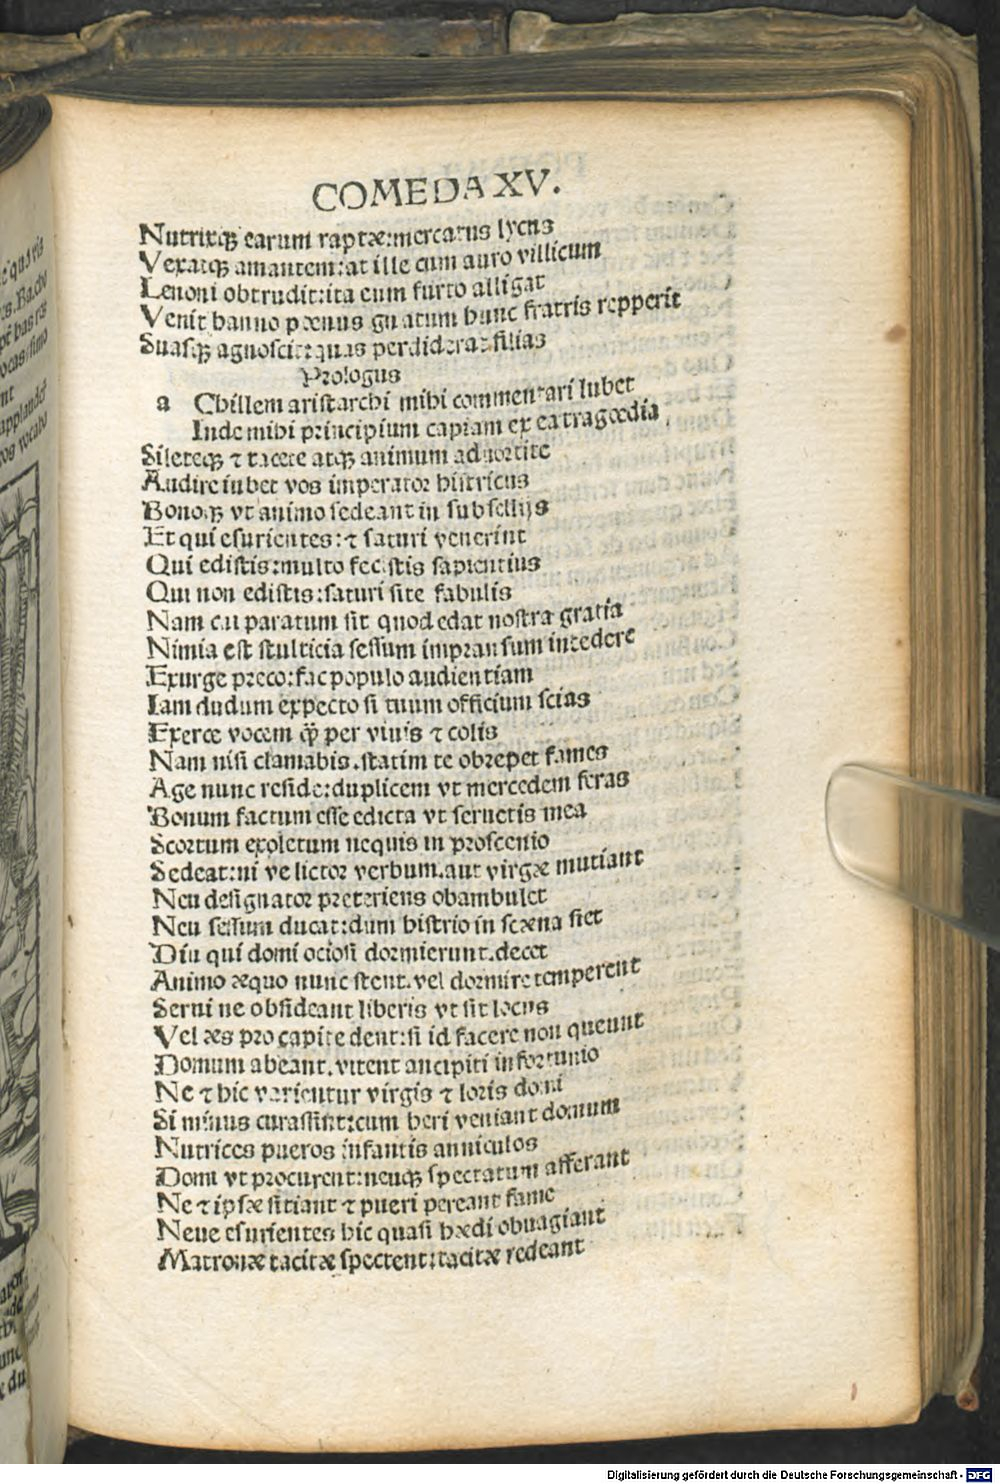 COMEDA XV.
Nutricꝙ earum raptæ:mercatus lycus
Vexatꝙ amantem:at ille cum auro villicum
Lenoni obtrudit:ita eum furto alligat
Venit hanno pœnus gnatum hunc fratris repperit
Suasꝙ agnoscit:quas perdiderat filias
Prologus
a Chillem aristarchi mihi commentari lubet
Inde mihi principium capiam ex ea tragœdia,
Sileteꝙ ⁊ tacete atꝙ animum aduortite
Audire iubet vos imperator histricus
Bonoꝙ vt animo sedeant in subsellijs
Et qui esurientes:⁊ saturi venerint
Qui edistis:multo fecistis sapientius
Qui non edistis:saturi fite fabulis
Nam cui paratum sit quod edat nostra gratia
Nimia est stulticia sessum impransum intedere
Exurge preco:fac populo audientiam
Iam dudum expecto si tuum officium scias
Exerce vocem ꝙ̃ per viuis ⁊ colis
Nam nisi clamabis.statim te obrepet fames
Age nunc reside:duplicem vt mercedem feras
Bonum factum esse edicta vt seruetis mea
Scortum exoletum nequis in proscenio
Sedeat:ni ve lictor verbum.aut virgæ mutiant
Neu designator preteriens obambulet
Neu sessum ducat:dum histrio in scæna siet
Diu qui domi ociosi dormierunt.decet
Animo æquo nunc stent.vel dormire temperent
Serui ne obsideant liberis vt sit locus
Vel æs pro capite dent:si id facere non queunt
Domum abeant.vitent ancipiti infortunio
Ne ⁊ hic varientur virgis ⁊ loris domi
Si minus curassint:cum heri veniant domum
Nutrices pueros infantis anniculos
Domi vt procurent:neuꝙ spectatum afferant
Ne ⁊ ipsæ sitiant ⁊ pueri pereant fame
Neue esurientes hic quasi hædi obuagiant
Matronæ tacitæ spectent:tacitæ redeant
Digitalisierung gefördert durch die Deutsche Forschungsgemeinschaft - DFG